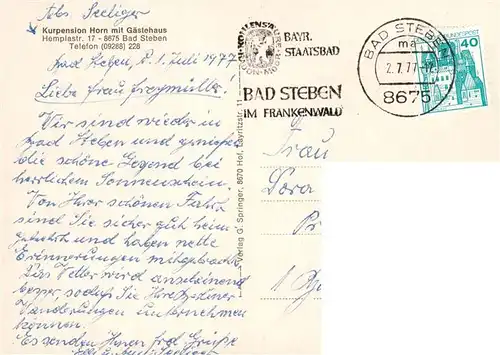 Abs. Seeliger
Kurpension Horn mit Gästehaus
Hemplastr. 17 - 8675 Bad Steben
Telefon (09288) 228
Bad Steben, d. 1. Juli 1977
Liebe Frau
Wir sind wieder in
Bad Steben und genießen
die schöne Gegend bei
herrlichem Sonnenschein.
Von Ihrer schönen Fahrt
sind Sie sicher gut heim-
gekehrt und haben nette
Erinnerungen mitgebracht.
Das Wetter wird anscheinend
besser, sodaß Sie Ihre
Wanderungen unternehmen
können.
Es senden Ihnen frdl. Grüße
BAYR.
STAATSBAD
BAD STEBEN
IM FRANKENWALD
BAD STEBEN
ma
2.7.77
8675
40
Verlag G. Springer, 8670 Hof, Layritzstr. 11
Frau
Lora